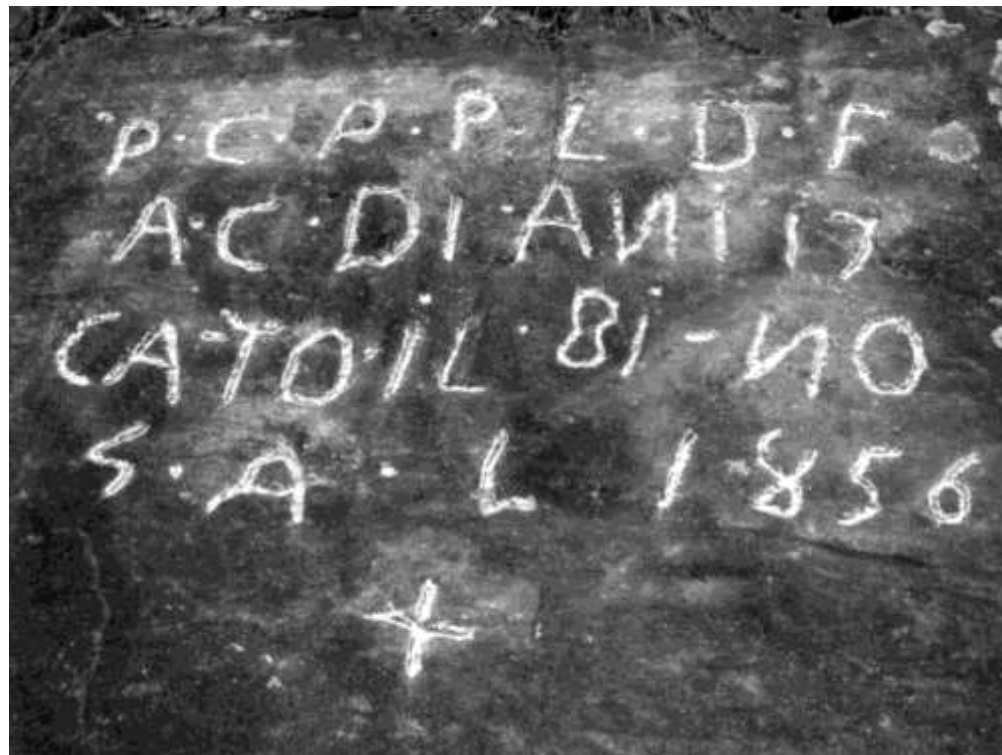 P·C·P·P·L·D·F
A·C·DI·ANI 17
CATO·IL·BI-NO
S·A·L 1856